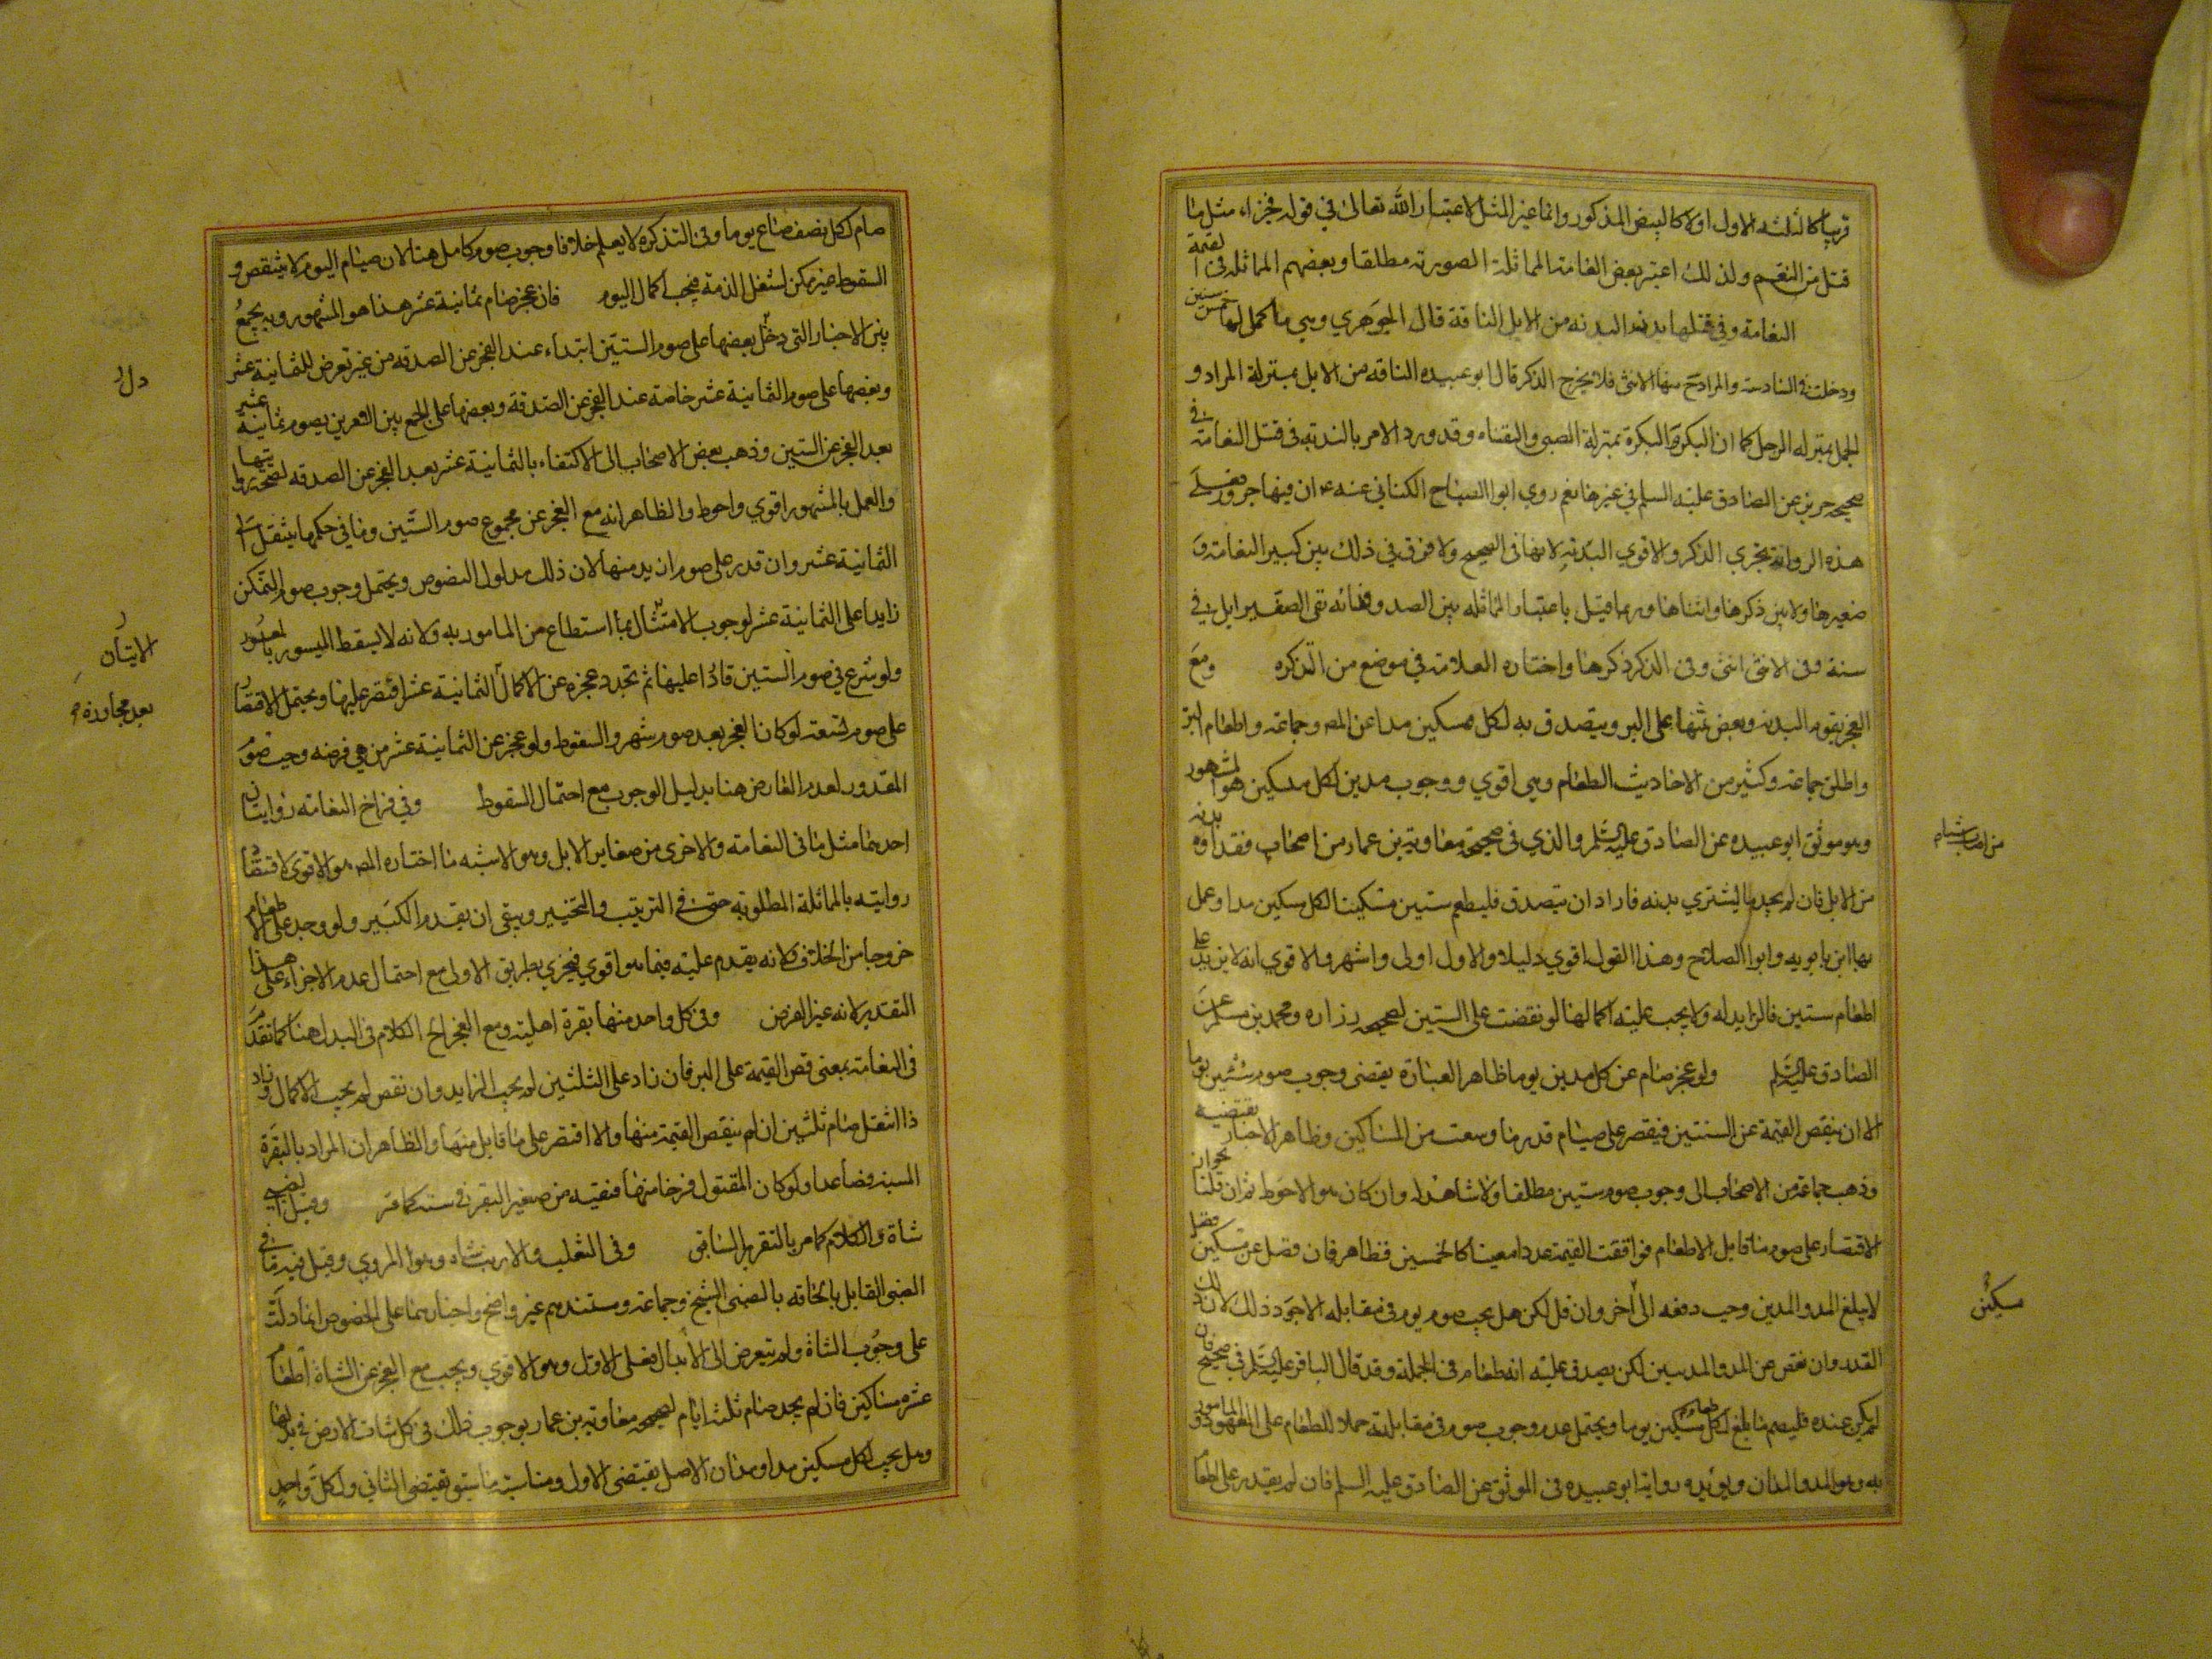 قريبا كالثلثه الاول اولا كالبيض المذكور وانما عبر المثل لاعتبار الله تعالى في قوله فجزاء مثل ما
قتل من النعم ولذلك اعتبر بعض العامة المماثلة الصورية مطلقا وبعضهم المماثلة في القيمة
النعامة وفي قتلها بدنه البدنه من الابل الناقة قال الجوهري وهي ما كمل لها خمس سنين
ودخلت في السادسة والمراد منها الانثى فلا يخرج الذكر قال ابو عبيده الناقه من الابل بمنزلة المراه و
الجمل بمنزله الرجل كما ان البكر والبكرة بمنزلة الصبي والفتاه وقد ورد الامر بالبدنة في قتل النعامة في
صحيحه حريز عن الصادق عليه السلم في غيرها نعم روي ابو الصباح الكناني عنه ع ان فيها جزور فعلى
هذه الرواية يجزي الذكر والاقوي البدنة لانها في الصحيح ولا فرق في ذلك بين كبير النعامة و
صغيرها ولا بين ذكرها وانثاها وربما قيل باعتبار المماثله بين الصيد وفدائه ففي الصغير ابل في
سنة وفي الانثى انثى وفي الذكر ذكر هنا واختاره العلامة في موضع من التذكره ومع
العجز يقوم البدنه ويفض ثمنها على البر ويتصدق به لكل مسكين مدا عن المصـ وجماعة واطعام البر
واطلق جماعة وكثير من الاحاديث الطعام وهي اقوي ووجوب مدين لكل مسكين هو المشهور
وهو موثق ابو عبيده عن الصادق عليه السلم والذي في صحيحة معاوية بن عمار من اصاب فداؤه بدنه
من اصاب شيئا
من الابل فان لم يجد ما يشتري بدنه فاراد ان يتصدق فليطعم ستين مسكينا لكل مسكين مدا وعمل
بها ابن بابويه وابو الصلاح وهذا القول اقوي دليلا والاول اولى واشهر والاقوي انه لا يزيد على
اطعام ستين فالزايد له ولا يجب عليه اكمالها لو نقصت على الستين لصحيحه زراره ومحمد بن مسلم عن
الصادق عليه السلم ولو عجز صام عن كل مدين يوما ظاهر العبارة يقتضى وجوب صوم ستين يوما
الا ان ينقص القيمة عن الستين فيقصر على صيام قدر ما وسعت من المساكين وظاهر الاخبار يقتضيه
وذهب جماعة من الاصحاب الى وجوب صوم ستين مطلقا ولا شاهد له وان كان هو الاحوط ثم ان قلنا بجواز
الاقتصار على صوم ما قابل الاطعام فوافقت القيمة عددا معينا كالخمسين فظاهر فان فضل عن مسكين
لا يبلغ المد والمدين وجب دفعه الى آخر وان قل لكن هل يجب صوم يوم في مقابله الاجود ذلك لان ذلك
مسكين
القدر وان نقص عن المد والمدين لكن يصدق عليه انه طعام في الجملة وقد قال الباقر عليه السلم في صحيح فان
لم يكن عنده فليصم ما بلغ لكل طعام مسكين يوما ويحتمل عدم وجوب صوم في مقابلته حملا للطعام على المعهود المامور
به وهو المد والمدان ويؤيده رواية ابو عبيده في الموثق عن الصادق عليه السلم فان لم يقدر على الطعام
صام لكل نصف صاع يوما وفي التذكره لا يعلم خلافا وجوب صوم كامل هنا لان صيام اليوم لا يتنقص و
السقوط غير ممكن لشغل الذمة فيجب اكمال اليوم فان عجز صام ثمانية عشر هذا هو المشهور وبه يجمع
بين الاخبار التي دخل بعضها على صوم الستين ابتداء عند العجز عن الصدقه من غير تعرض للثمانية عشر
دل
وبعضها على صوم الثمانية عشر خاصة عند العجز عن الصدقة وبعضها على الجمع بين الامرين بصوم ثمانية عشر
بعد العجز عن الستين وذهب بعض الاصحاب الى الاكتفاء بالثمانية عشر بعد العجز عن الصدقه لصحة روايتها
والعمل بالمشهور اقوي واحوط والظاهر انه مع العجز عن مجموع صوم الستين وما في حكمها ينتقل الى
الثمانية عشر وان قدر على صوم ازيد منها لان ذلك مدلول النصوص ويحتمل وجوب صوم المتمكن
زايدا على الثمانية عشر لوجوب الامتثال بما استطاع من المامور به ولانه لا يسقط الميسور بالمعسور
الاتيان
ولو شرع في صوم الستين قادرا عليها ثم تجدد عجزه عن الاكمال الثمانية عشر اقتصر عليها ويحتمل الاقتصار
بعد مجاوزة
على صوم تسعة لو كان العجز بعد صوم شهر والسقوط ولو عجز عن الثمانية عشر من هي فرضه وجب صوم
المقدور لعدم المعارض هنا بدليل الوجوب مع احتمال السقوط وفي فراخ النعامة روايتان
احدهما مثل ما في النعامة والاخرى من صغاير الابل وهو الاشبه ما اختاره المصـ هو الاقوى لاقتضاء
روايته بالمماثلة المطلوبة حتى في الترتيب والتخيير وينبغي ان يقدم الكبير ولو وجد على الاطعام
خروجا من الخلاف ولانه يقدم عليه فيما هو اقوي فيجزي بطريق الاولى مع احتمال عدم الاجزاء على هذا
التقدير لانه غير الفرض وفي كل واحد منها بقرة اهلية ومع العجز الخ الكلام في البدل هنا كما تقدم
في النعامة بمعنى فض القيمة على البر فان زاد على الثلثين لم يجب الزايد وان نقص لم يجب الاكمال و
ذا انتقل صام ثلثين ان لم ينقص القيمة منها والا اقتصر على ما قابل منها والظاهر ان المراد بالبقرة
المسنة فصاعدا ولو كان المقتول فرخا منها ففيه من صغير البقر في سنه كما مر وقيل
شاة والكلام كما مر بالتقرير السابق وفي الثعلب والارنب شاه وهو المروي وقيل فيه ما في
الضبى القايل بالحاقه بالضبى الشيخ وجماعة ومستندهم غير واضح واخبارهما على الخصوص انما دلت
على وجوب الشاة ولم يتعرض الى الابدال فعلى الاول وهو الاقوي ويجب مع العجز عن الشاة اطعام
عشره مساكين فان لم يجد صام ثلثة ايام لصحيحه معاوية بن عمار بوجوب ذلك في كل شاة
وهل يجب لكل مسكين مدا ومدان الاصل يقتضى الاول ومناسبة ما سبق يقتضى الثاني ولكل واحد